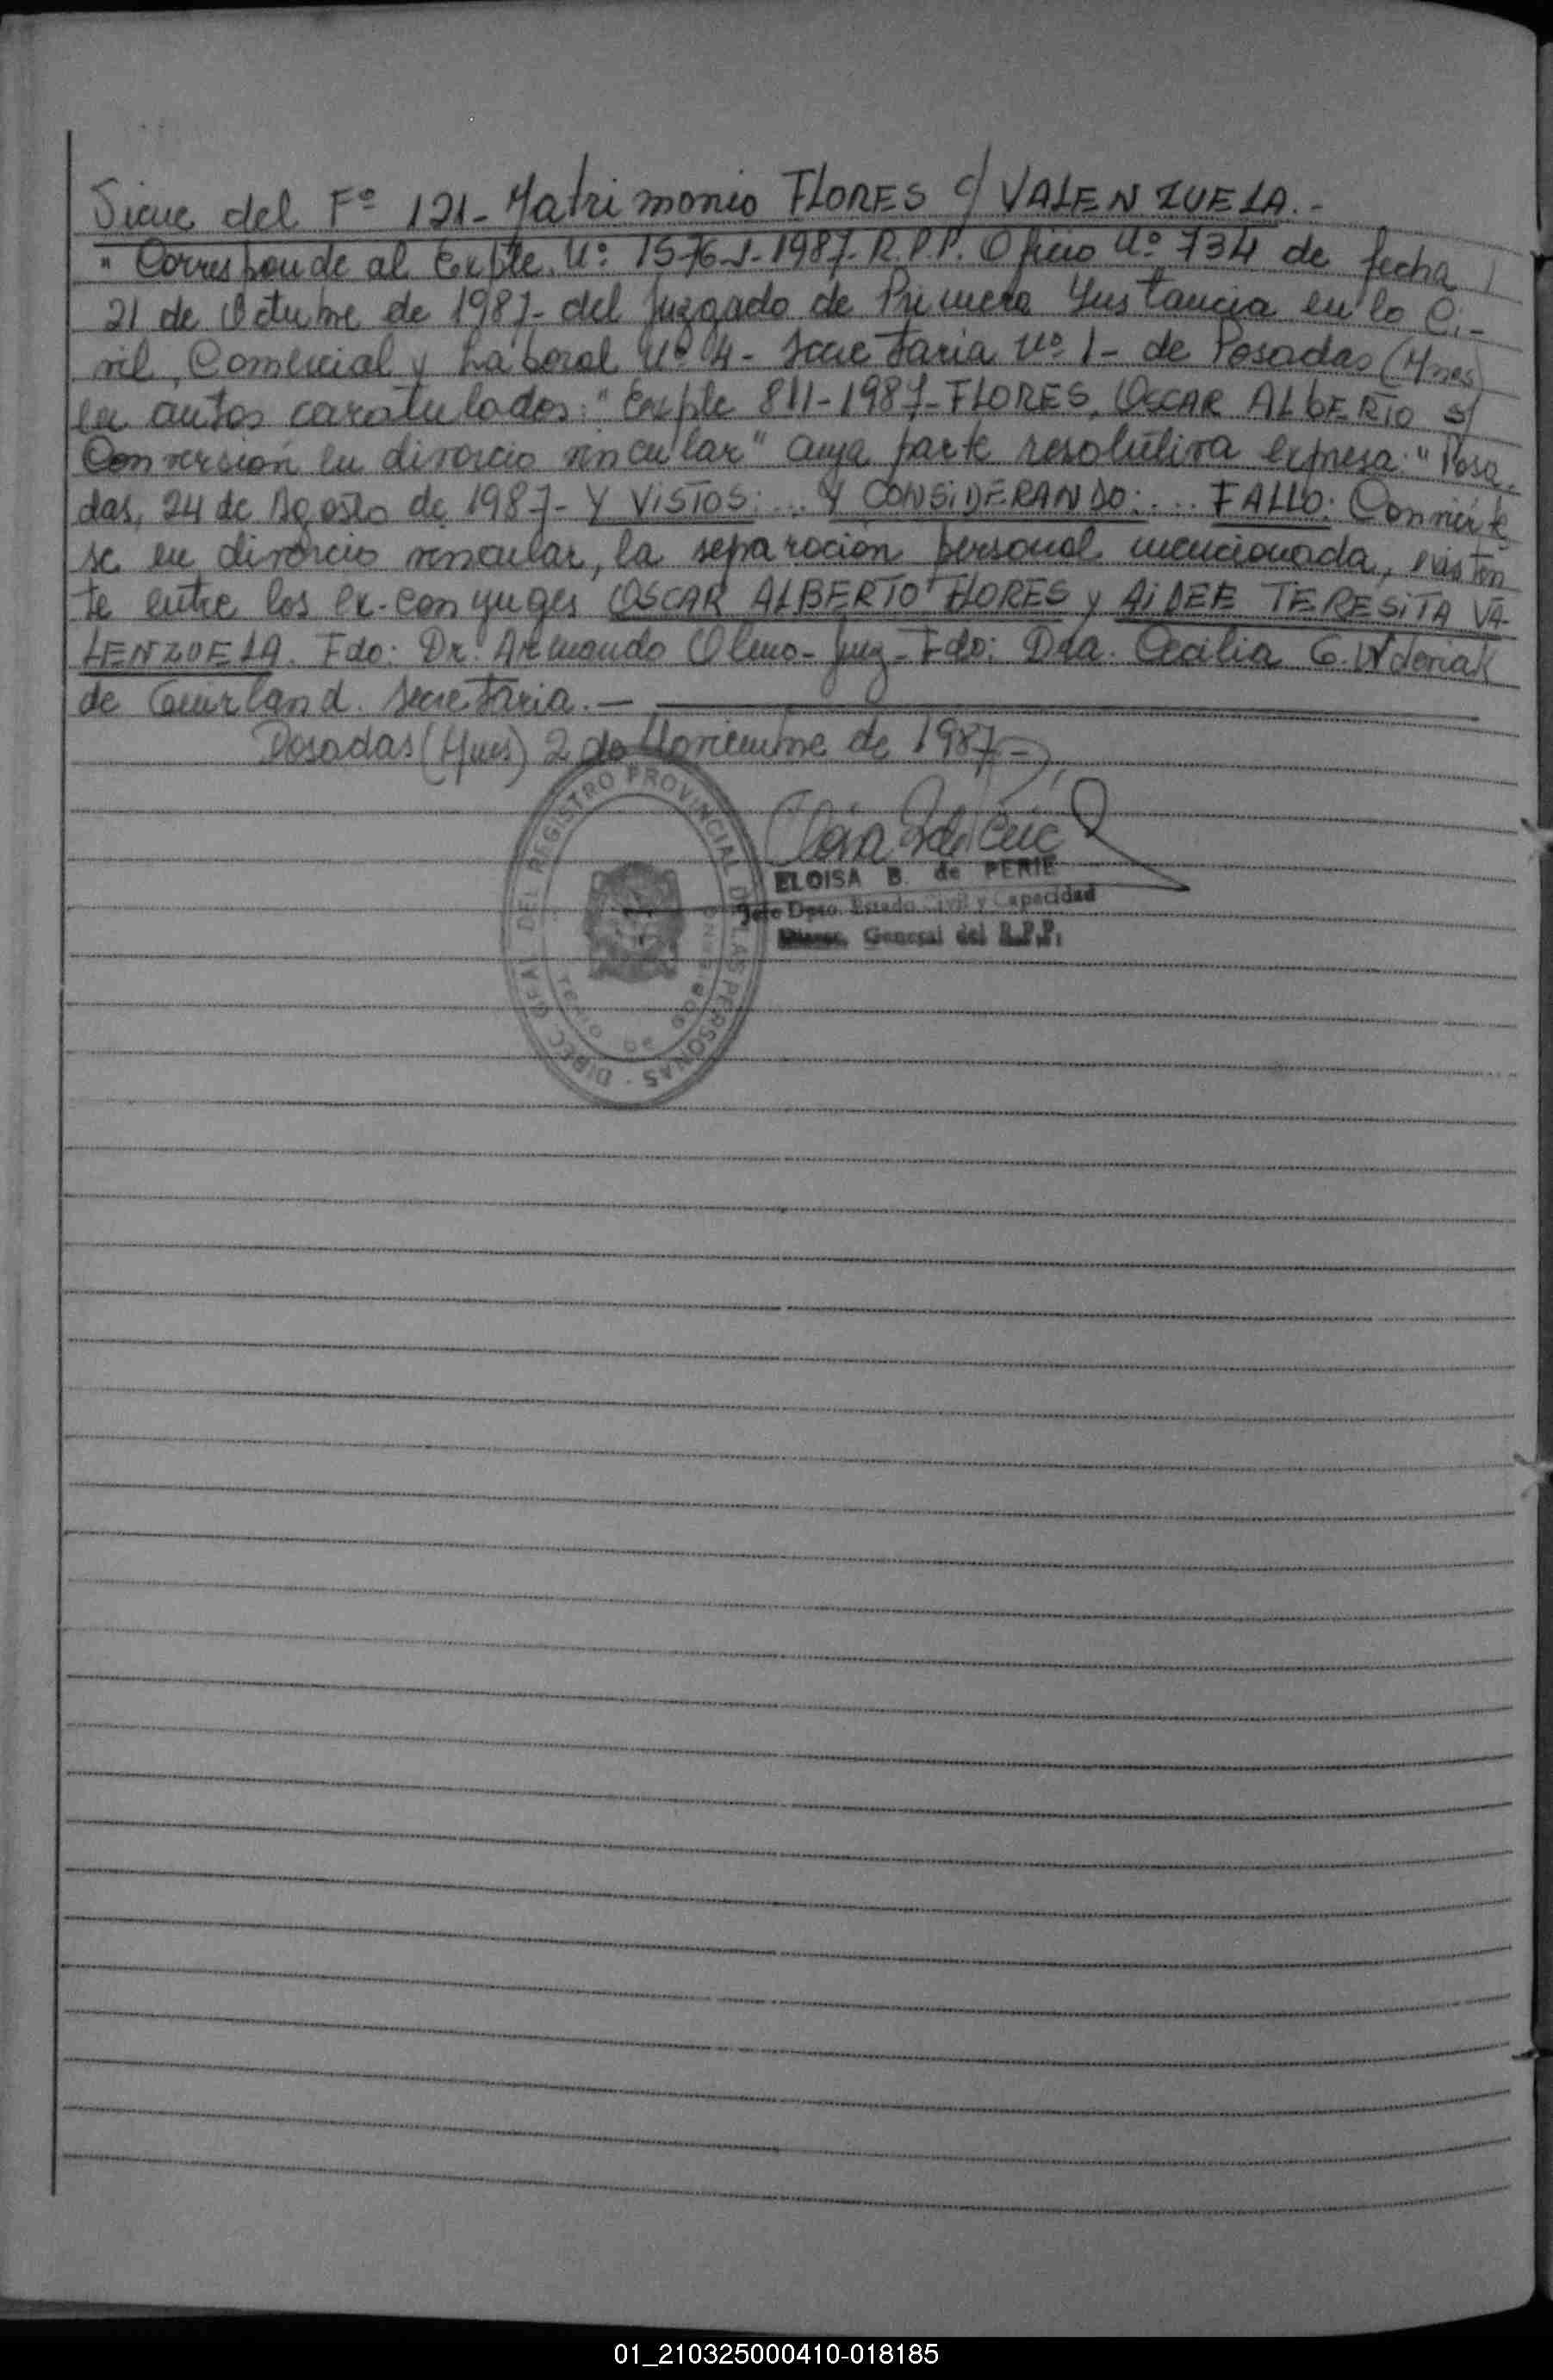 Sigue del Fº 121- Matrimonio FLORES c/ VALENZUELA.-
" Corresponde al Expte. Nº 1576-J-1987- R.P.P. Oficio Nº 734 de fecha
21 de Octubre de 1987- del Juzgado de Primera Instancia en lo Ci-
vil, Comercial y Laboral Nº 4- Secretaria Nº 1- de Posadas (Mnes)
en autos caratulados: "Expte 811-1987- FLORES, OSCAR ALBERTO s/
Conversión en divorcio vincular" cuya parte resolutiva expresa: "Posa-
das, 24 de Agosto de 1987- Y VISTOS: ... Y CONSIDERANDO: ... FALLO: Convierte
se en divorcio vincular, la separación personal mencionada, existen
te entre los ex-conyuges OSCAR ALBERTO FLORES y AIDEE TERESITA VA-
LENZUELA. Fdo: Dr. Armando Olmo- Juez- Fdo: Dra. Cecilia G.
de Guirland. Secretaria.-
Posadas (Mnes) 2 de Noviembre de 1987-
ELOISA B. de PERIE
Jefe Dpto. Estado Civil y Capacidad
General del R.P.P.
DIREC. GRAL DEL REGISTRO PROVINCIAL DE LAS PERSONAS